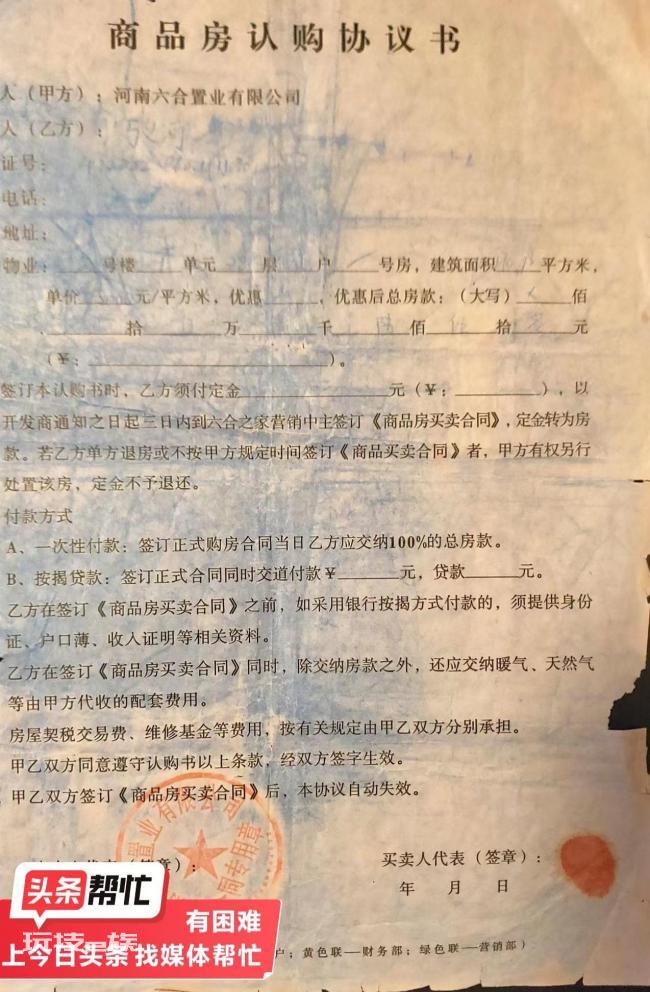 商品房认购协议书
人（甲方）：河南六合置业有限公司
人（乙方）：
证号：
电话：
地址：
物业：____号楼____单元____层____户____号房，建筑面积____平方米，
单价____元/平方米，优惠____，优惠后总房款：（大写）____佰
____拾____万____千____佰____拾____元
（￥：____）。
签订本认购书时，乙方须付定金____元（￥：____），以
开发商通知之日起三日内到六合之家营销中主签订《商品房买卖合同》，定金转为房
款。若乙方单方退房或不按甲方规定时间签订《商品买卖合同》者，甲方有权另行
处置该房，定金不予退还。
付款方式
A、一次性付款：签订正式购房合同当日乙方应交纳100%的总房款。
B、按揭贷款：签订正式合同同时交道付款￥____元，贷款____元。
乙方在签订《商品房买卖合同》之前，如采用银行按揭方式付款的，须提供身份
证、户口薄、收入证明等相关资料。
乙方在签订《商品房买卖合同》同时，除交纳房款之外，还应交纳暖气、天然气
等由甲方代收的配套费用。
房屋契税交易费、维修基金等费用，按有关规定由甲乙双方分别承担。
甲乙双方同意遵守认购书以上条款，经双方签字生效。
甲乙双方签订《商品房买卖合同》后，本协议自动失效。
置业有限公司
合同专用章
（签章）：
买卖人代表（签章）：
年 月 日
户；黄色联—财务部；绿色联—营销部）
头条帮忙
有困难
上今日头条 找媒体帮忙
玩技e族